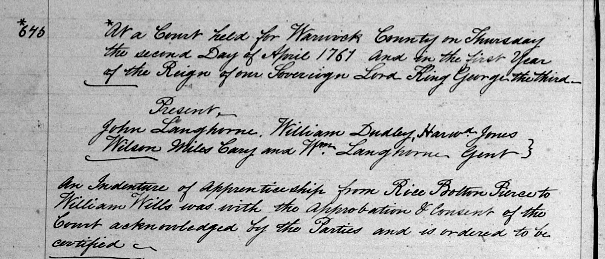 *646 *At a Court held for Warwick County on Thursday
the second Day of April 1761 And in the first Year
of the Reign of our Sovereign Lord King George the third
Present,
John Langhorne, William Dudley, Harwd Jones
Wilson Miles Cary and Wm Langhorne Gent }
An Indenture of Apprenticeship from Rice Bolton Pierce to
William Wills was with the Approbation & Consent of the
Court acknowledged by the Parties and is ordered to be
certified